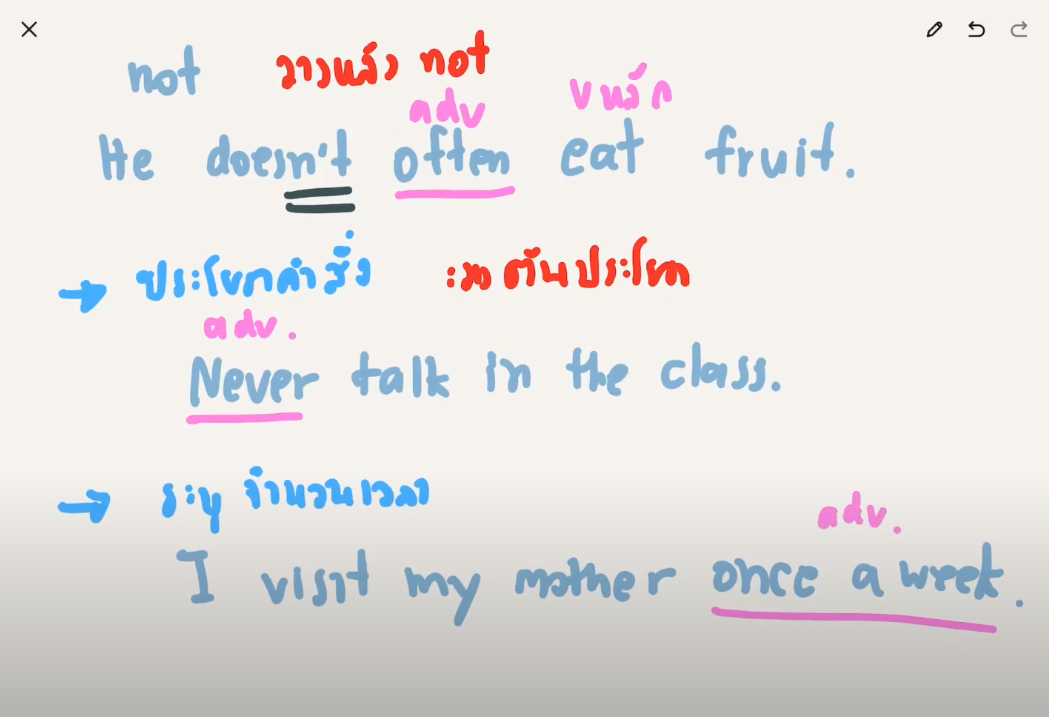 not วางหลัง not
adv v หลัก
He doesn't often eat fruit.
→ ประโยคคำสั่ง ต้นประโยค
adv.
Never talk in the class.
→ ระบุ จำนวนเวลา
adv.
I visit my mother once a week.